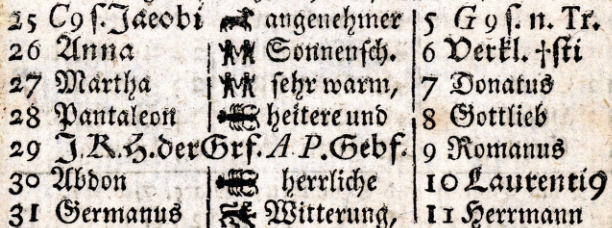 25 C 9 ſ. Jacobi angenehmer 5 G 9 ſ. n. Tr.
26 Anna Sonnenſch. 6 Verkl. †ſti
27 Martha ſehr warm, 7 Donatus
28 Pantaleon heitere und 8 Gottlieb
29 J. K. H. der Grf. A. P. Gebf. 9 Romanus
30 Abdon herrliche 10 Laurenti9
31 Germanus Witterung, 11 Herrmann